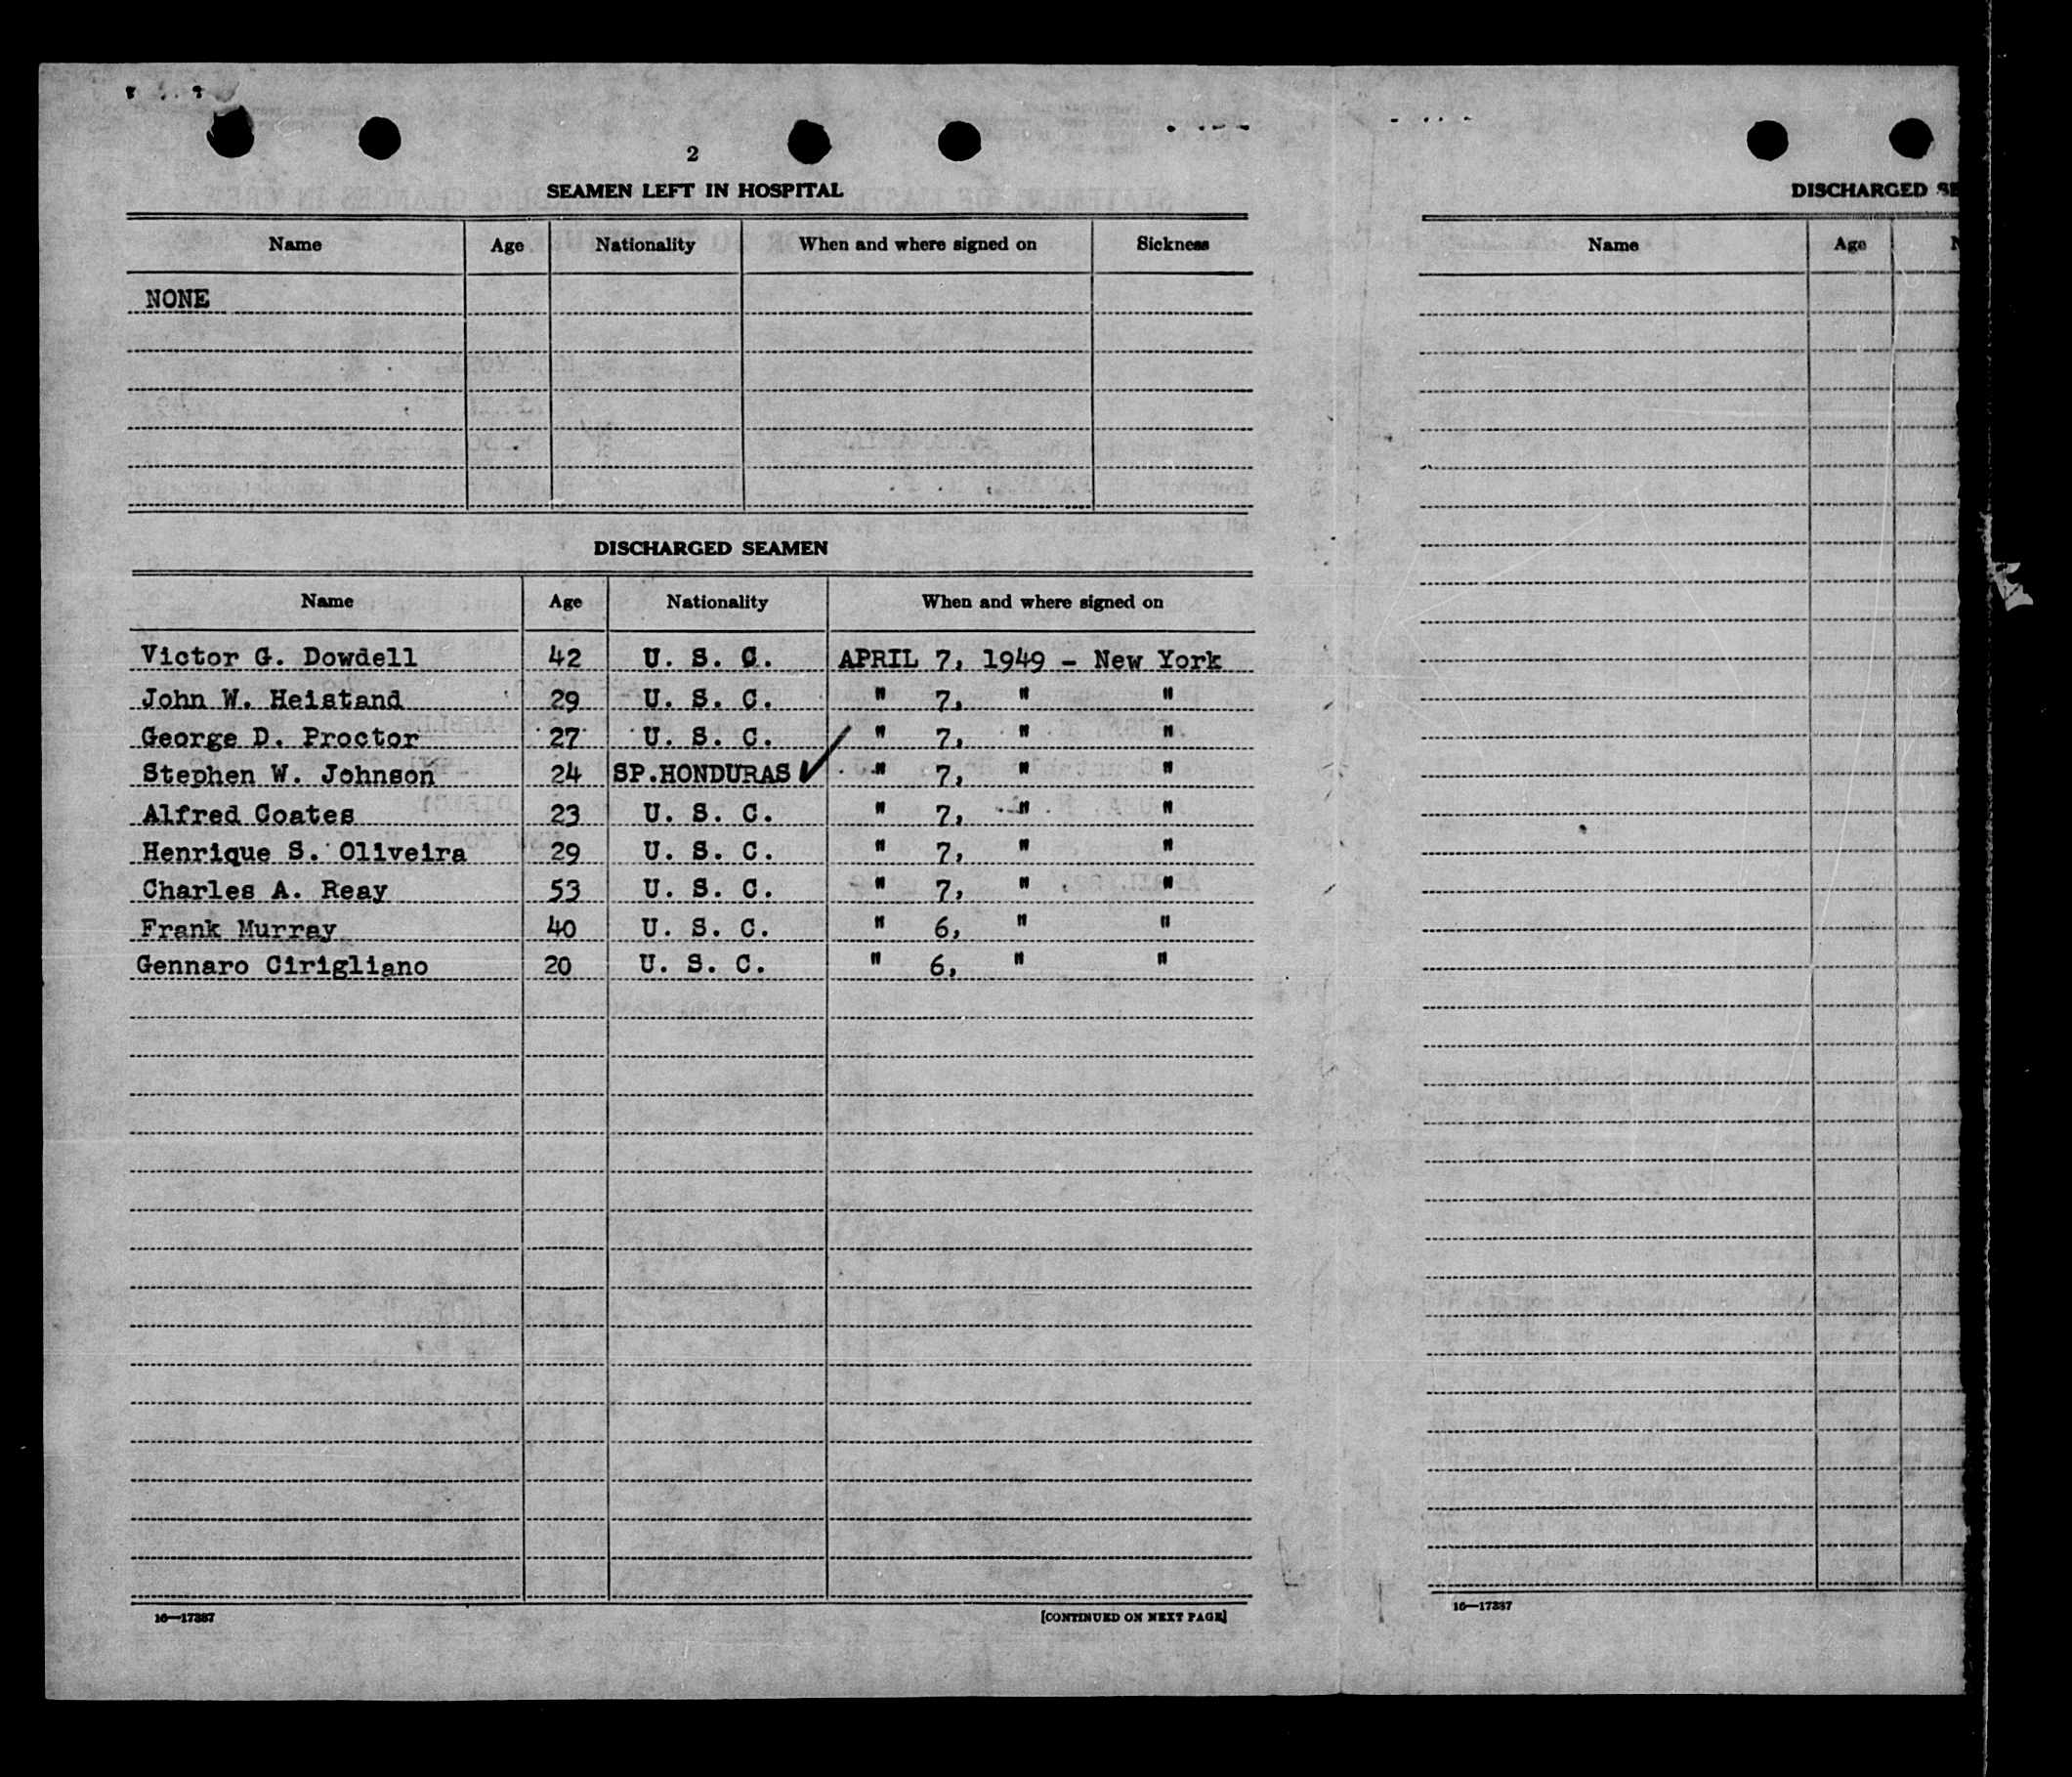 2
SEAMEN LEFT IN HOSPITAL
Name Age Nationality When and where signed on Sickness
NONE
DISCHARGED SEAMEN
Name Age Nationality When and where signed on
Victor G. Dowdell 42 U. S. C. APRIL 7, 1949 - New York
John W. Heistand 29 U. S. C. " 7, " "
George D. Proctor 27 U. S. C. " 7, " "
Stephen W. Johnson 24 SP.HONDURAS ✓ " 7, " "
Alfred Coates 23 U. S. C. " 7, " "
Henrique S. Oliveira 29 U. S. C. " 7, " "
Charles A. Reay 53 U. S. C. " 7, " "
Frank Murray 40 U. S. C. " 6, " "
Gennaro Cirigliano 20 U. S. C. " 6, " "
16—17387 [CONTINUED ON NEXT PAGE]
DISCHARGED SE
Name Age N
16—17387